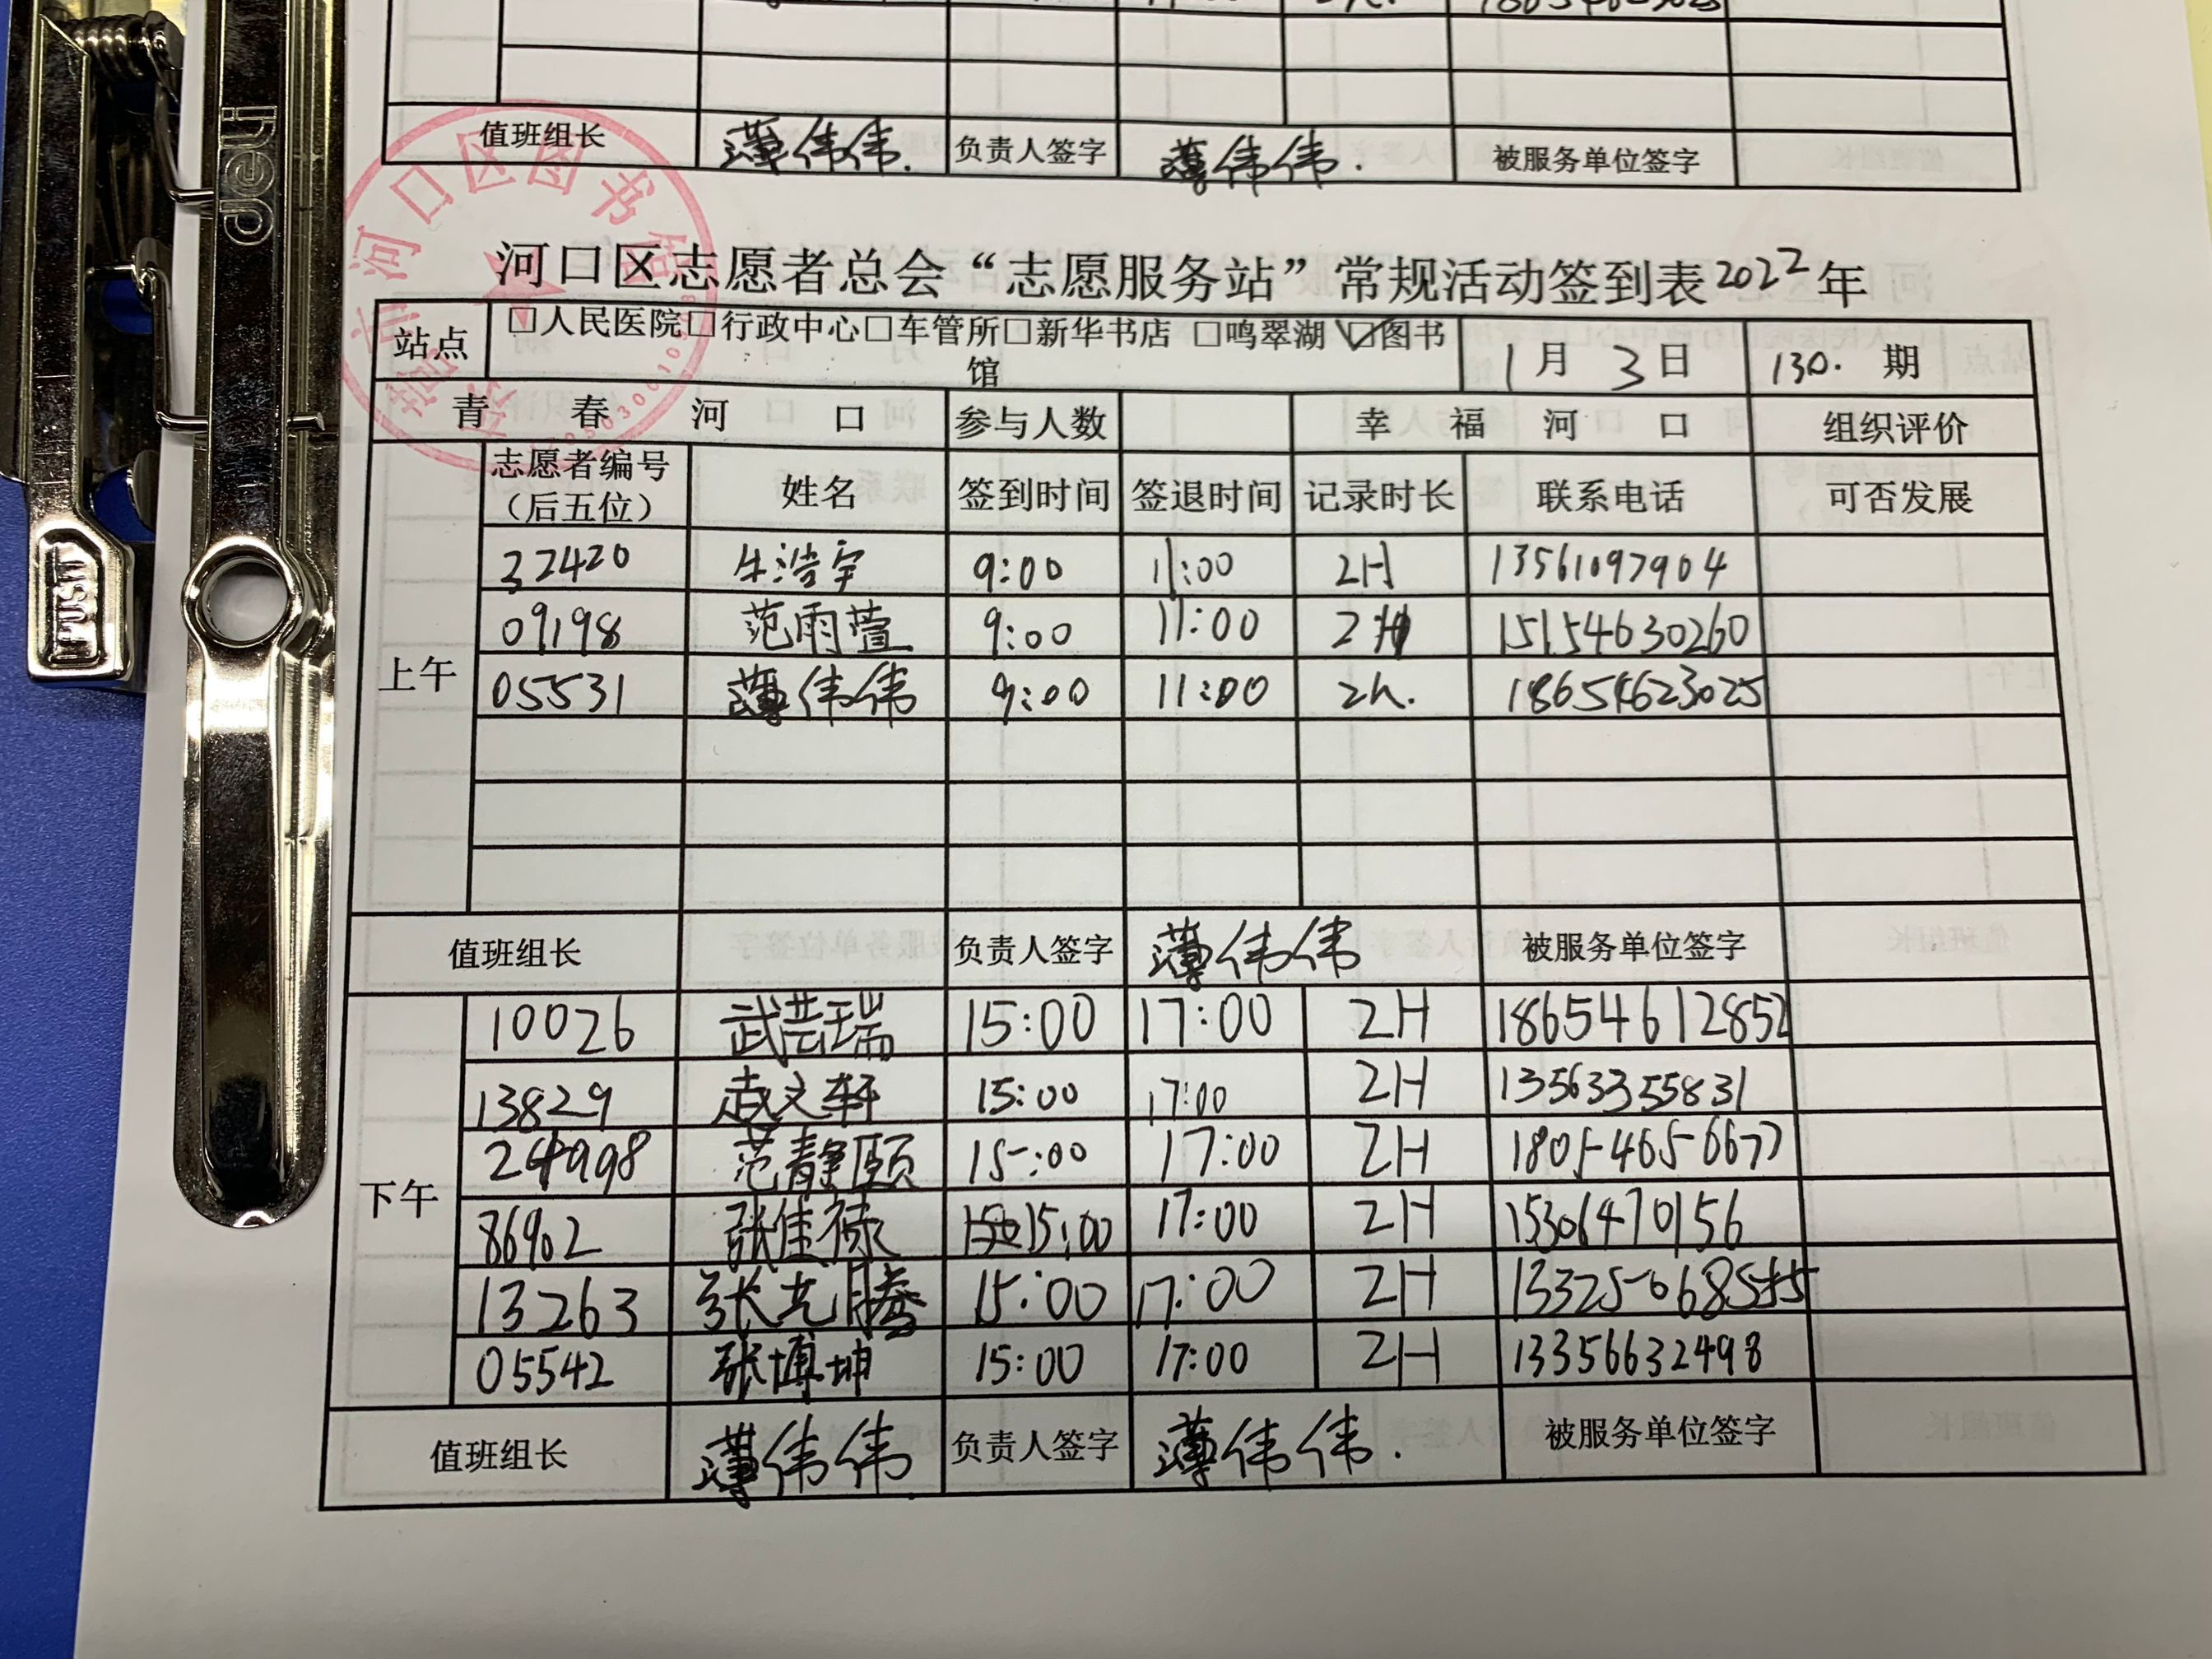 值班组长 薄伟伟. 负责人签字 薄伟伟. 被服务单位签字
河口区图书馆
河口区志愿者总会“志愿服务站”常规活动签到表2022年
站点 □人民医院□行政中心□车管所□新华书店 □鸣翠湖 ☑图书馆 1月3日 130. 期
青春河口 参与人数 幸福河口 组织评价
志愿者编号（后五位） 姓名 签到时间 签退时间 记录时长 联系电话 可否发展
上午
32420 牛浩宇 9:00 11:00 2H 13561097904
09198 范雨萱 9:00 11:00 2H 15154630260
05531 薄伟伟 9:00 11:00 2h. 18654623025
值班组长 负责人签字 薄伟伟 被服务单位签字
下午
10026 武芸瑞 15:00 17:00 2H 18654612852
13829 武文轩 15:00 17:00 2H 13563355831
24998 范静颐 15:00 17:00 2H 18054656677
86902 张佳禄 15:00 17:00 2H 15306470156
13263 张光腾 15:00 17:00 2H
05542 张博坤 15:00 17:00 2H 13356632498
值班组长 薄伟伟 负责人签字 薄伟伟. 被服务单位签字
hep
PUSH